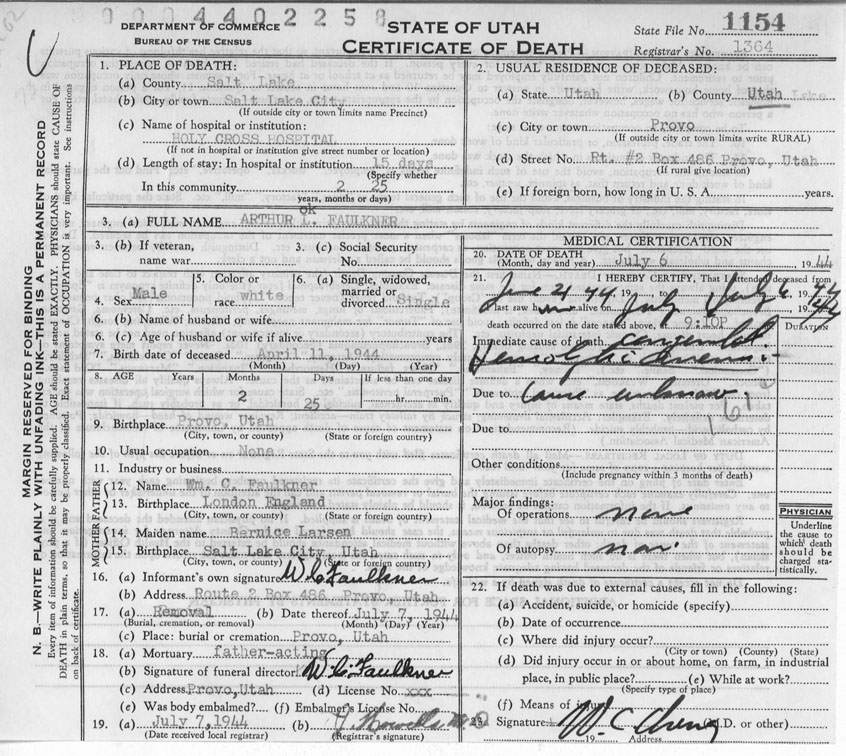 0004402258
DEPARTMENT OF COMMERCE
BUREAU OF THE CENSUS
STATE OF UTAH
CERTIFICATE OF DEATH
State File No. 1154
Registrar's No. 1364
MARGIN RESERVED FOR BINDING
N. B.—WRITE PLAINLY WITH UNFADING INK—THIS IS A PERMANENT RECORD
Every item of information should be carefully supplied. AGE should be stated EXACTLY. PHYSICIANS should state CAUSE OF
DEATH in plain terms, so that it may be properly classified. Exact statement of OCCUPATION is very important. See instructions
on back of certificate.
1. PLACE OF DEATH:
(a) County Salt Lake
(b) City or town Salt Lake City
(If outside city or town limits name Precinct)
(c) Name of hospital or institution:
HOLY CROSS HOSPITAL
(If not in hospital or institution give street number or location)
(d) Length of stay: In hospital or institution 15 days
(Specify whether
In this community 2 25
years, months or days)
2. USUAL RESIDENCE OF DECEASED:
(a) State Utah (b) County Utah Lake
(c) City or town Provo
(If outside city or town limits write RURAL)
(d) Street No. Rt. #2 Box 486 Provo, Utah
(If rural give location)
(e) If foreign born, how long in U. S. A. years.
3. (a) FULL NAME ARTHUR L. FAULKNER
ok
3. (b) If veteran,
name war
3. (c) Social Security
No.
4. Sex Male
5. Color or
race white
6. (a) Single, widowed,
married or
divorced Single
6. (b) Name of husband or wife
6. (c) Age of husband or wife if alive years
7. Birth date of deceased April 11, 1944
(Month) (Day) (Year)
8. AGE Years Months Days If less than one day
2 25 hr. min.
9. Birthplace Provo, Utah
(City, town, or county) (State or foreign country)
10. Usual occupation None
11. Industry or business
FATHER
12. Name Wm. C. Faulkner
13. Birthplace London England
(City, town, or county) (State or foreign country)
MOTHER
14. Maiden name Bernice Larsen
15. Birthplace Salt Lake City, Utah
(City, town, or county) (State or foreign country)
16. (a) Informant's own signature W C Faulkner
(b) Address Route 2 Box 486 Provo, Utah
17. (a) Removal (b) Date thereof July 7, 1944
(Burial, cremation, or removal) (Month) (Day) (Year)
(c) Place: burial or cremation Provo, Utah
18. (a) Mortuary father-acting
(b) Signature of funeral director W. C. Faulkner
(c) Address Provo, Utah (d) License No. xxx
(e) Was body embalmed? (f) Embalmer's License No.
19. (a) July 7, 1944 (b)
(Date received local registrar) (Registrar's signature)
MEDICAL CERTIFICATION
20. DATE OF DEATH
(Month, day and year) July 6 , 1944
21. I HEREBY CERTIFY, That I attended deceased from
June 21 44 19 to July 6 1944
last saw him alive on July 6 , 1944
death occurred on the date stated above, at 9:10P
DURATION
Immediate cause of death congenital
Hemolytic Anemia
Due to Cause unknown
Due to
Other conditions
(Include pregnancy within 3 months of death)
Major findings:
Of operations none
Of autopsy
PHYSICIAN
Underline
the cause to
which death
should be
charged sta-
tistically.
22. If death was due to external causes, fill in the following:
(a) Accident, suicide, or homicide (specify)
(b) Date of occurrence
(c) Where did injury occur?
(City or town) (County) (State)
(d) Did injury occur in or about home, on farm, in industrial
place, in public place? (e) While at work?
(Specify type of place)
(f) Means of injury
23. Signature W. C. (M.D. or other)
19 Address